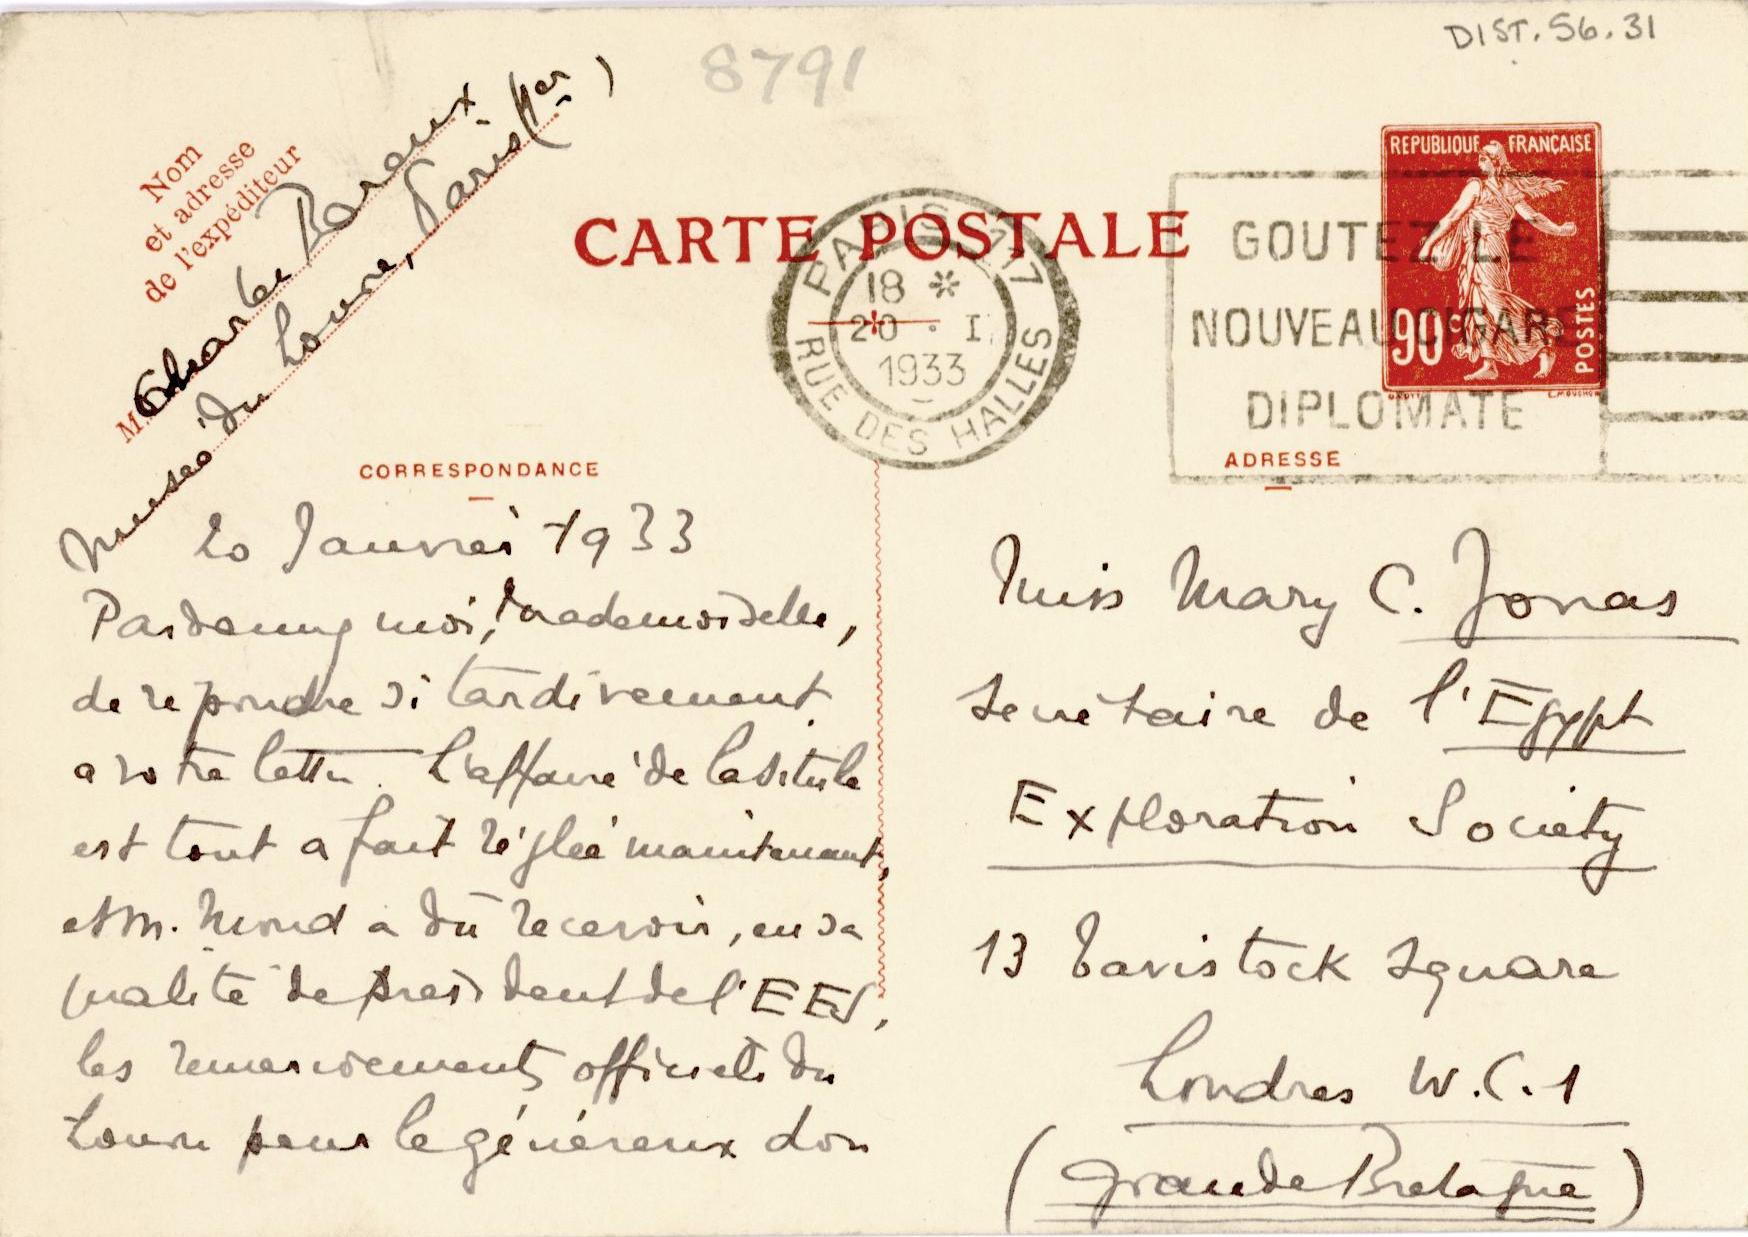 DIST. 56.31
8791
Nom
et adresse
de l'expéditeur
M. Charles Boreux
Musée du Louvre, Paris (1er)
CARTE POSTALE
REPUBLIQUE FRANÇAISE
90c
POSTES
PARIS 117
18 *
20 · I
1933
RUE DES HALLES
GOUTEZ LE
NOUVEAU CIGARE
DIPLOMATE
CORRESPONDANCE
ADRESSE
20 Janvier 1933
Pardonnez moi, Mademoiselle,
de répondre si tardivement
a votre lettre. L'affaire de la situle
est tout a fait réglée maintenant,
et M. Mond a dû recevoir, en sa
qualité de président de l'EES,
les remerciements officiels du
Louvre pour le généreux don
Miss Mary C. Jonas
Secrétaire de l'Egypt
Exploration Society
13 Tavistock Square
Londres W.C.1
(Grande Bretagne)